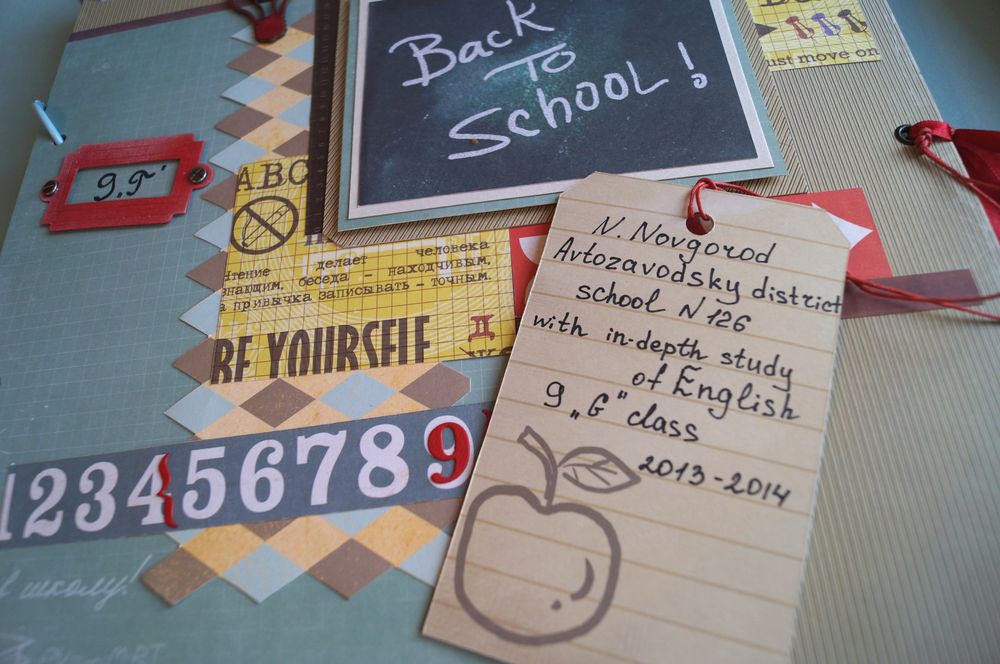 Back
To
School!
ust move on
9.Г'
ABC
Чтение делает человека
знающим, беседа - находчивым,
а привычка записывать - точным.
BE YOURSELF
N. Novgorod
Avtozavodsky district
school N 126
with in-depth study
of English
9 „G" class
2013-2014
123456789
школу!